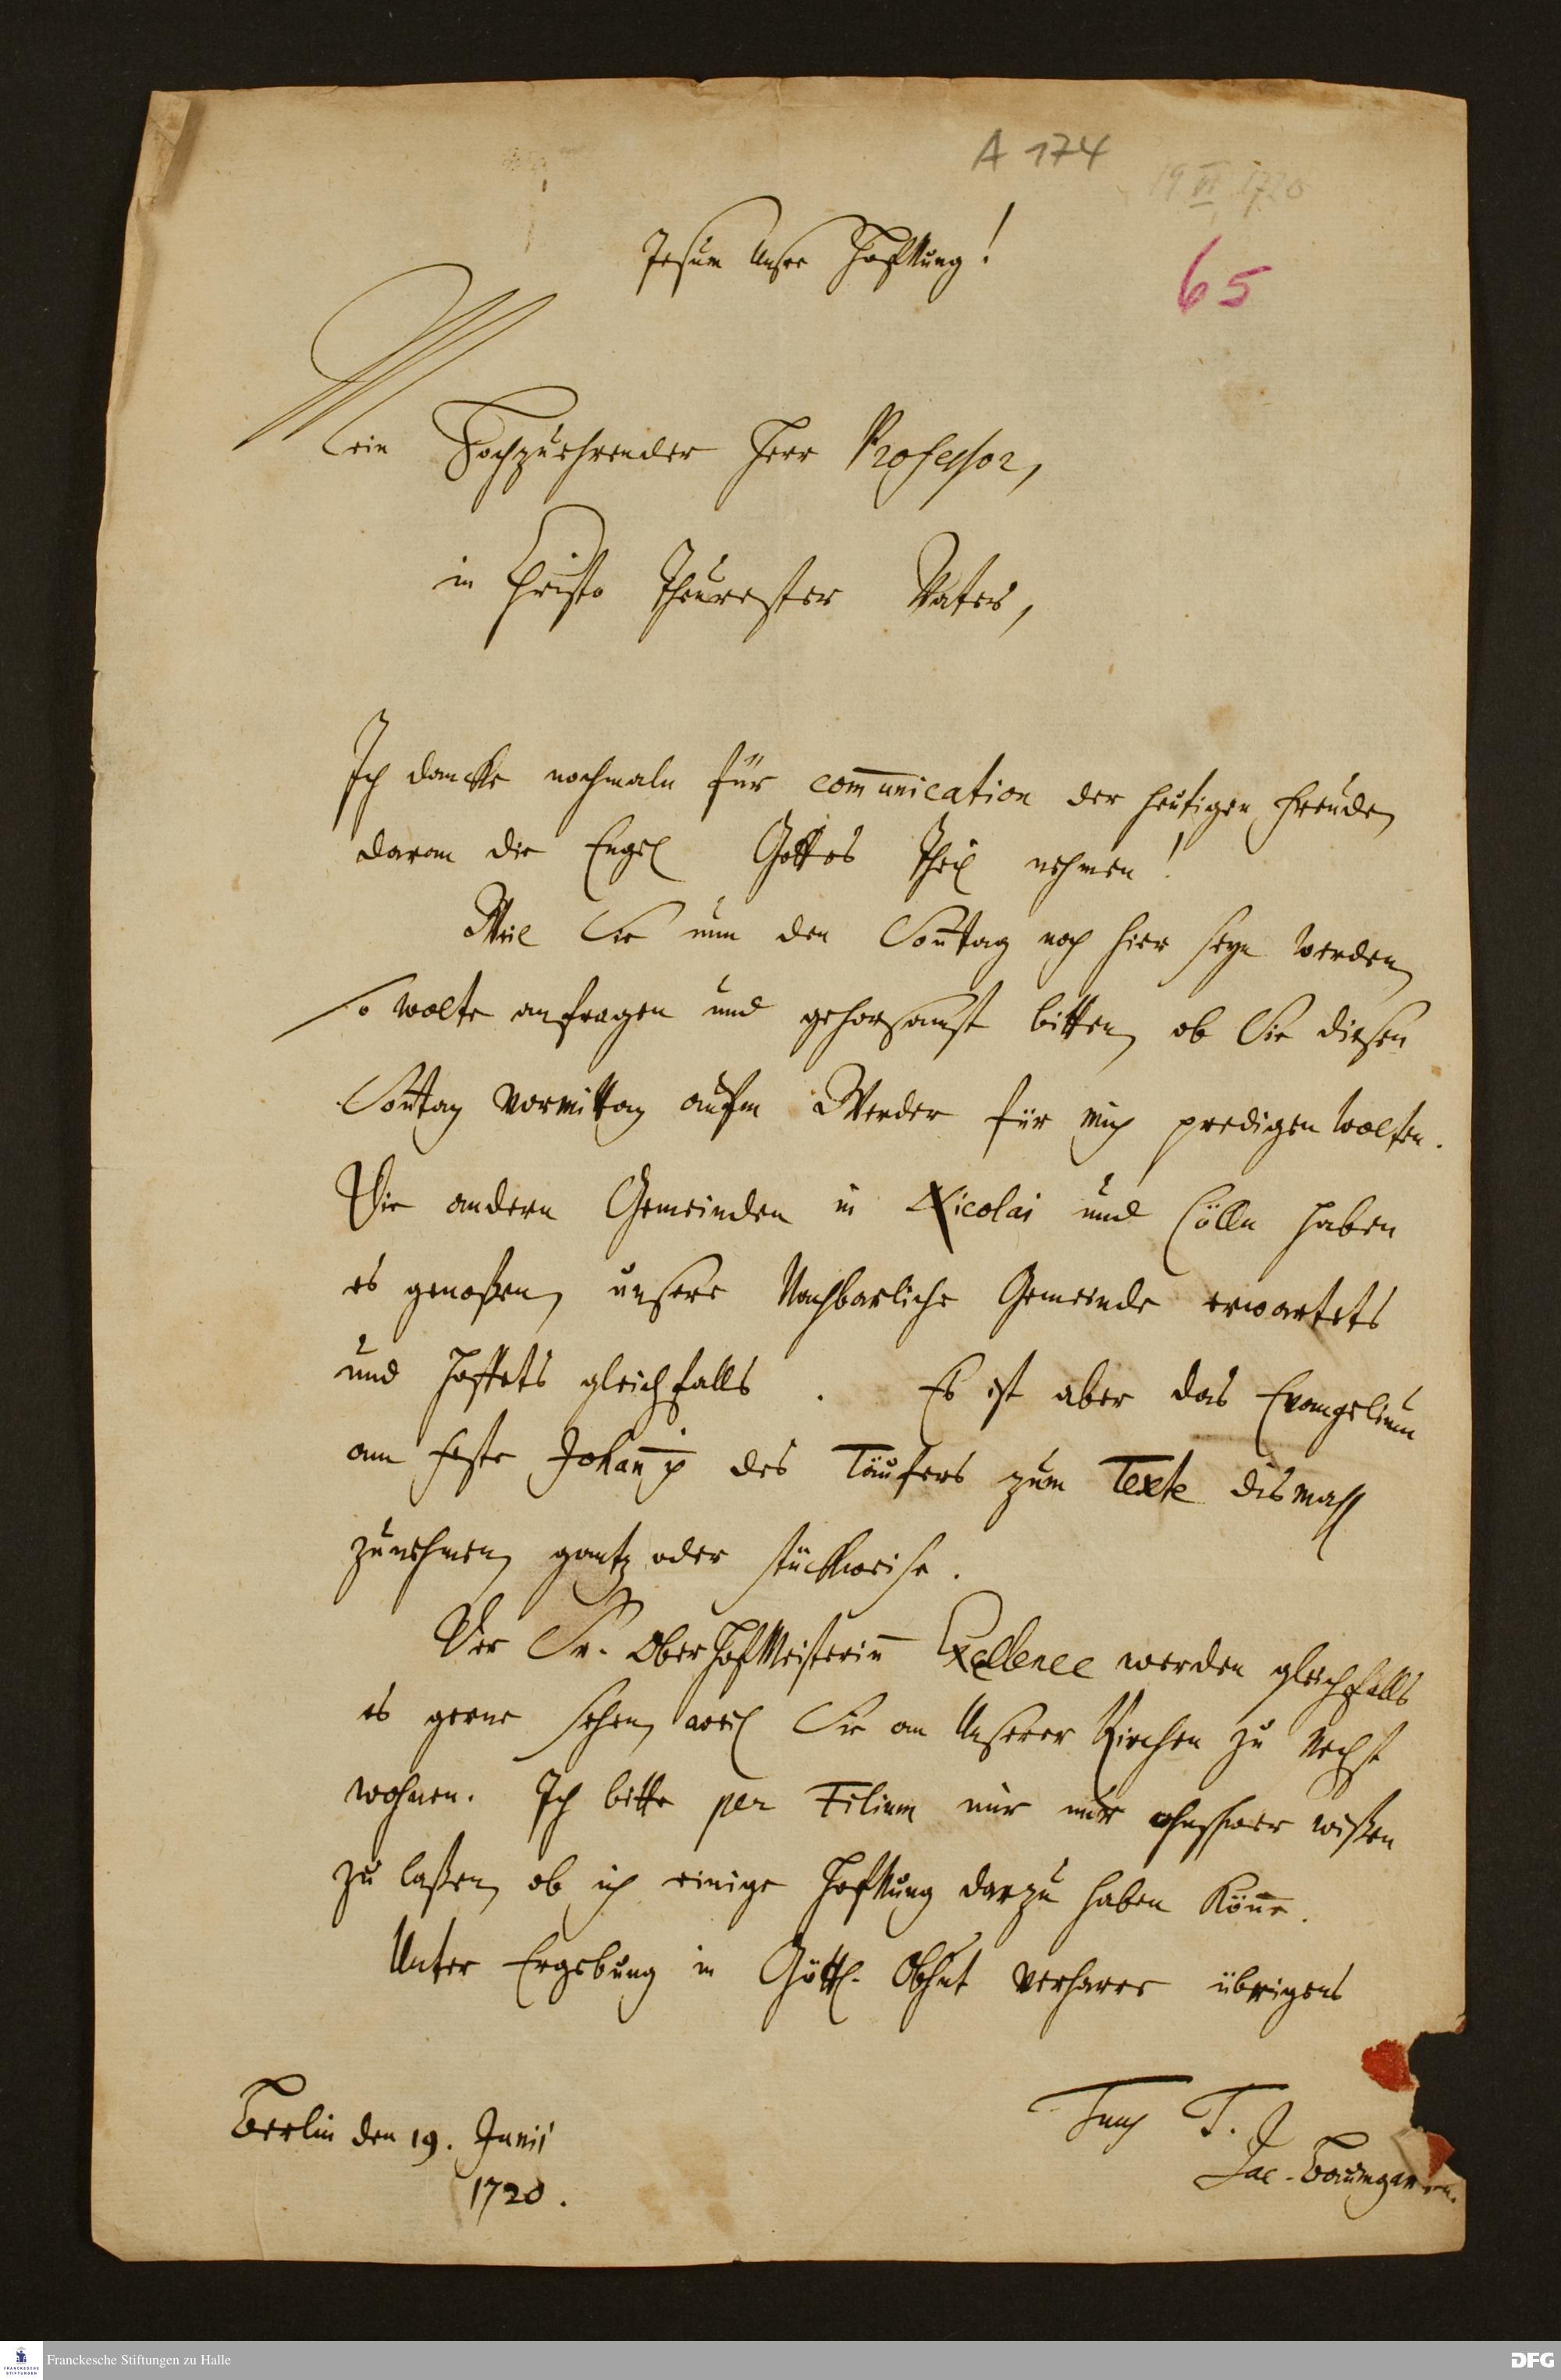 A 174
19 VI 1720
65
Jesum unsre Hoffnung!
Mein Hochzuehrender Herr Professor,
in Christo Theurester Vater,
Ich dancke nochmaln für com̅unication der heutigen Freude,
daran die Engel Gottes Theil nehmen!
Weil Sie nun den Son̅tag noch hier seyn werden,
so wolte anfragen und gehorsamst bitten, ob Sie diesen
Son̅tag vormittag aufm Werder für mich predigen wolten.
Die andern Gemeinden in Nicolai und Cölln haben
es genoßen, unsere Nachbarliche Gemeinde erwartets
und hoffets gleichfalls. Es ist aber das Evangelium
am Feste Johan̅is des Täufers zum Texte dismahl
zunehmen, gantz oder stückweise.
Der Fr. OberHofMeisterin̅ Excellence werden gleichfalls
es gerne sehen, weil Sie an Unserer Kirchen zu nechst
wohnen. Ich bitte per Filium mir nur ohnschwer wißen
zu laßen, ob ich einige Hoffnung darzu haben kön̅e.
Unter Ergebung in Göttl. Obhut verharre übrigens
Berlin den 19. Junii
1720.
T.
Jac. Baumgarten.
Franckesche Stiftungen zu Halle
FRANCKESCHE STIFTUNGEN
DFG